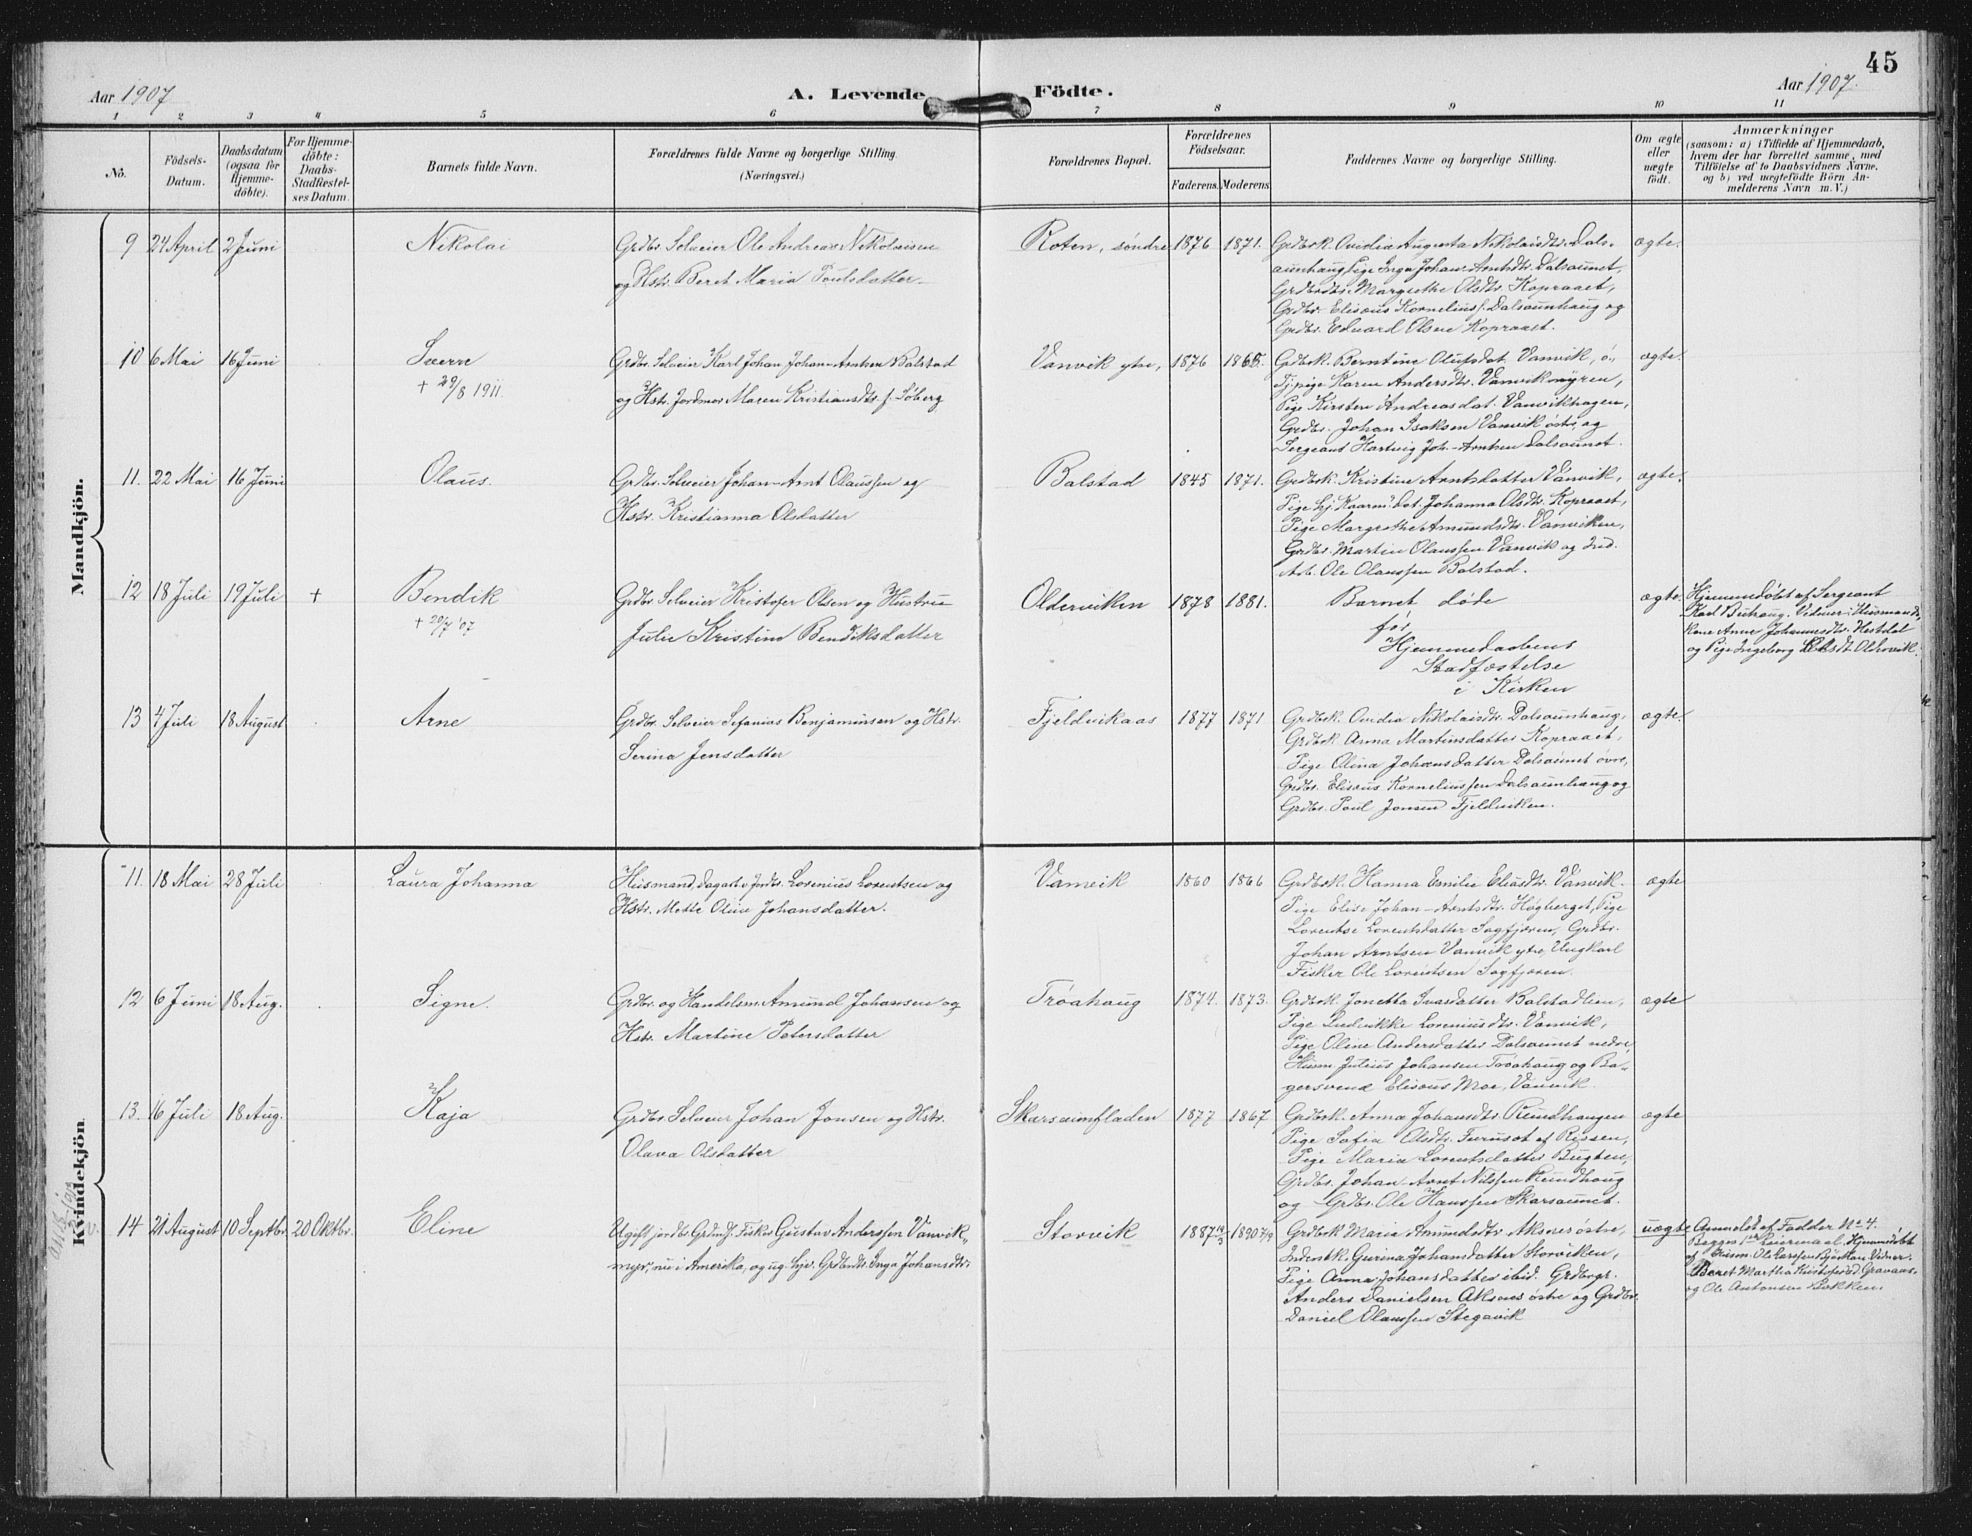 45
Aar 1907
A. Levende
Födte.
Aar 1907.
1 2 3 4 5 6 7 8 9 10 11
No.
Födsels-
Datum.
Daabsdatum
(ogsaa för
Hjemme-
döbte).
For Hjemme-
döbte:
Daabs-
Stadfæstel-
ses Datum.
Barnets fulde Navn.
Forældrenes fulde Navne og borgerlige Stilling.
(Næringsvei.)
Forældrenes Bopæl.
Forældrenes
Födselsaar.
Faderens. Moderens.
Faddernes Navne og borgerlige Stilling.
Om ægte
eller
uægte
födt.
Anmærkninger
(saasom: a) i Tilfælde af Hjemmedaab,
hvem der har forrettet samme, med
Tilföielse af to Daabsvidners Navne,
og b) ved uægtefödte Börn An-
melderens Navn m. V.)
Mandkjön.
9 24 April 2 Juni Nikolai
Grdbr. Selveier Ole Andreas Nikolaisen
og Hstr. Beret Maria Poulsdatter
Roten, søndre 1876 1871.
Grdbsk. Ovidia Augusta Nikolaisdtr. Dals-
aunhaug, Pige Inga Johan-Arntsdtr. Dalsaunet,
Grdbrdtr. Margrethe Olsdtr. Kopraaet,
Grdbr. Elisæus Kornelius f. Dalsaunhaug og
Grdbr. Eduard Olsen Kopraaet.
ægte.
10 6 Mai 16 Juni Sverre
+ 29/8 1911.
Grdbr. Selveier Karl Johan Johan-Arntsen Balstad
og Hstr. Jordmor Maren Kristiansdtr. f. Søberg
Vanvik ytre, 1876 1865.
Grdbsk. Berntine Olufsdat. Vanvik, ø.,
Tj.pige Karen Andersdtr. Vanvikmyren,
Pige Kirsten Andreasdat. Vanvikhagen,
Grdbr. Johan Isaksen Vanvik østre og
Sergeant Hartvig Joh-Arntsen Dalsaunet.
ægte.
11. 22 Mai 16 Juni Olaus.
Grdbr. Selveier Johan-Arnt Olaussen og
Hstr. Kristianna Olsdatter
Balstad 1845 1871.
Grdbsk. Kristine Arntsdatter Vanvik,
Pige hj. Faaren: Dat. Johanna Olsdtr. Kopraaet,
Pige Margrethe Amundsdtr. Vanviken,
Grdbr. Martin Olaussen Vanvik og Ind.
Arb. Ole Olaussen Balstad.
ægte.
12 18 Juli 19 Juli + Bendik
+ 20/7 '07
Grdbr. Selveier Kristofer Olsen og Hustru
Julie Kristine Bendiksdatter
Olderviken 1878 1881.
Barnet døde
før
Hjemmedaabens
Stadfæstelse
i Kirken
ægte.
Hjemmedøbt af Sergeant
Karl Buhaug. Vidner: Husmands-
kone Anne Johannesdtr. Hestdal
og Pige Ingeborg Olsdt. Oldervik.
13 4 Juli 18 August Arne
Grdbr. Selveier Sefanias Benjaminsen og Hstr.
Serina Jensdatter
Fjeldvikaas 1877 1871
Grdbsk. Ovidia Nikolaisdtr. Dalsaunhaug,
Grdbsk. Anna Martinsdatter Kopraaet,
Pige Olina Johansdatter Dalsaunet øvre,
Grdbr. Elisæus Korneliussen Dalsaunhaug og
Grdbr. Poul Jonsen Fjeldviken.
ægte.
Kvindekjön.
11. 18 Mai 28 Juli Laura Johanna
Husmand, Dagarb. u. Jordbr. Lorenius Lorentsen og
Hstr. Mette Oline Johansdatter.
Vanvik 1860 1866
Grdbsk. Hanna Emilie Eliasdtr. Vanvik.
Pige Elise Johan-Arntsdtr. Høgberget, Pige
Lorentse Lorentsdatter Sagfjæren, Grdbr.
Johan Arntsen Vanvik ytre, Ungkarl
Fisker Ole Lorentsen Sagfjæren.
ægte
12 6 Juni 18 Aug. Signe.
Grdbr. og Handelsm. Amund Johansen og
Hstr. Martine Petersdatter
Trøahaug 1874. 1873.
Grdbsk. Jonetta Ivarsdatter Balstadlien,
Pige Ludvikke Loreniusdtr. Vanvik,
Pige Oline Andersdatter Dalsaunet nedre,
Husm. Julius Johansen Trøahaug og Ba-
gersvend Elisæus Moe, Vanvik
ægte
13. 16 Juli 18 Aug. Kaja
Grdbr. Selveier Johan Jonsen og Hstr.
Olava Olsdatter
Skarsaunfladen 1877 1867
Grdbsk. Anna Johansdtr. Rundhaugen
Pige Sofia Olsdtr. Furuset af Rissen,
Pige Maria Lorentsdatter Bugten,
Grdbr. Johan Arnt Nilssen Rundhaug
og Grdbr. Ole Hanssen Skarsaunet.
ægte
14 21 August 10 Septbr. 20 Oktbr. Eline
Ugift jordbr. Grdmds. Fisker Gustav Anderssen Vanvik-
myr, nu i Amerika, og ug. hjv. Grdmdtr. Inga Johansdtr.
Storvik 1887 14/3 1890 7/9
Grdbsk. Maria Amundsdtr. Aksnes østre,
Inderstk. Gurine Johansdatter Storviken,
Pige Anna Johansdatter ibid. Grdbrgr.
Anders Danielsen Aksnes østre og Grdbr.
Daniel Olaussen Stegavik
uægte
Anmeldt af Fadder No 4.
Begges 1ste Leiermaal. Hjemmedøbt
af Husm. Ole Larssen Bjørkan. Vidner:
Beret Martha Kristofersd. Gravaas
og Ole Antonsen Bakken.